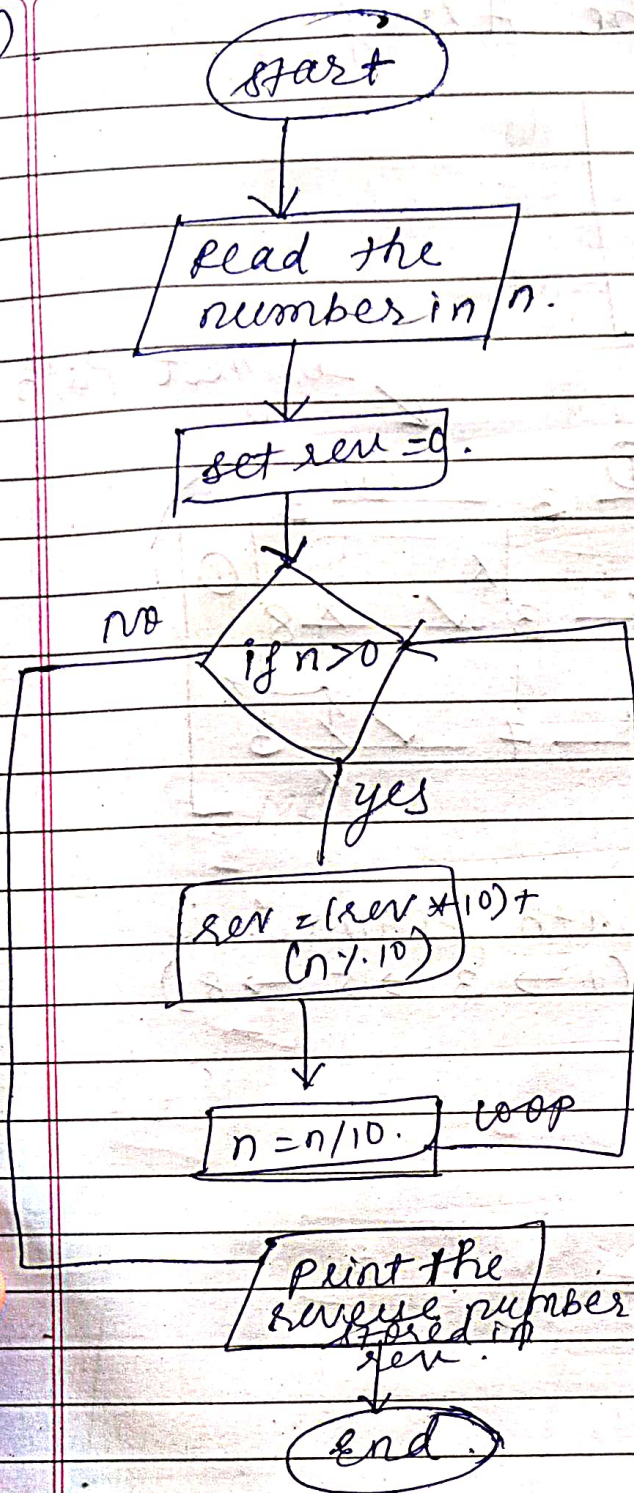 start
Read the
number in n.
set rev =0.
no
if n>0
yes
rev = (rev * 10) +
(n % 10)
n = n/10.
loop
print the
reverse number
stored in
rev.
End.